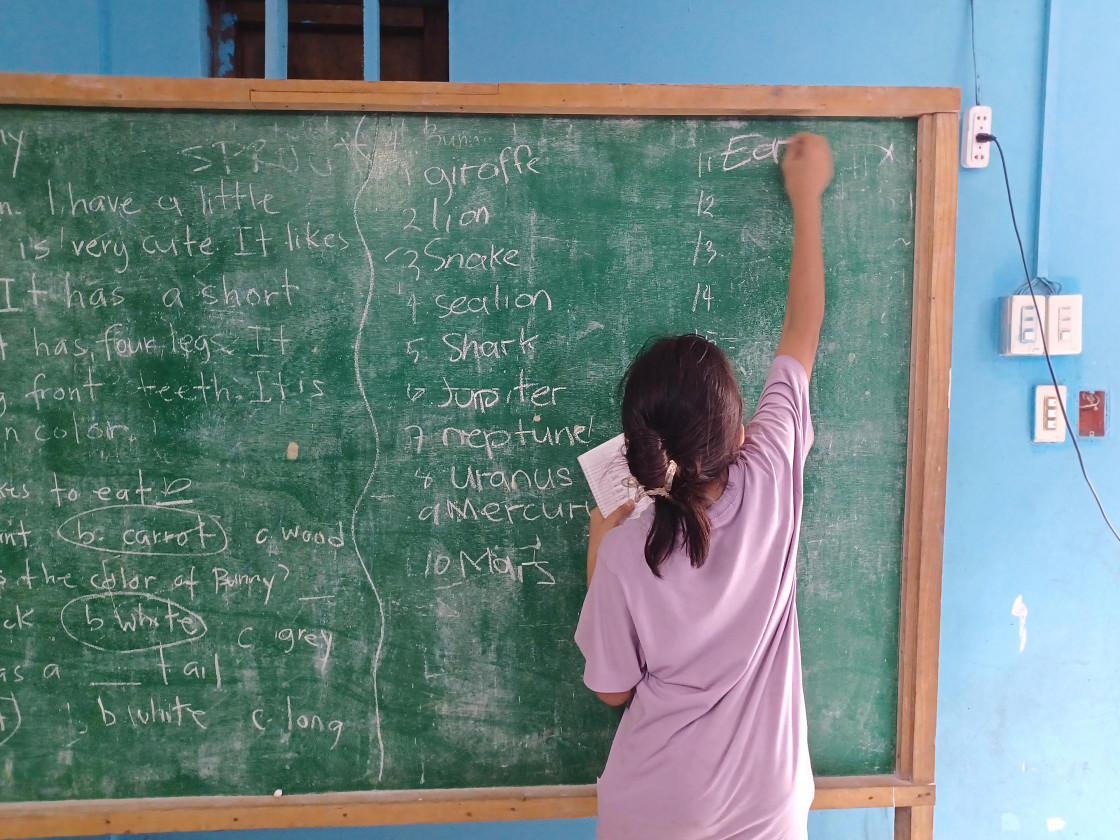 y
I have a little
is very cute It likes
It has a short
has four legs It
front teeth. It is
n color.
to eat b
b. carrot c wood
the color of Bunny?
ck b white c grey
as a ___ tail
b white c long
1 giraffe
2 lion
3 Snake
4 sealion
5 Shark
6 Jupiter
7 neptune
8 Uranus
9 Mercury
10 Mars
11 Ear
12
13
14
15